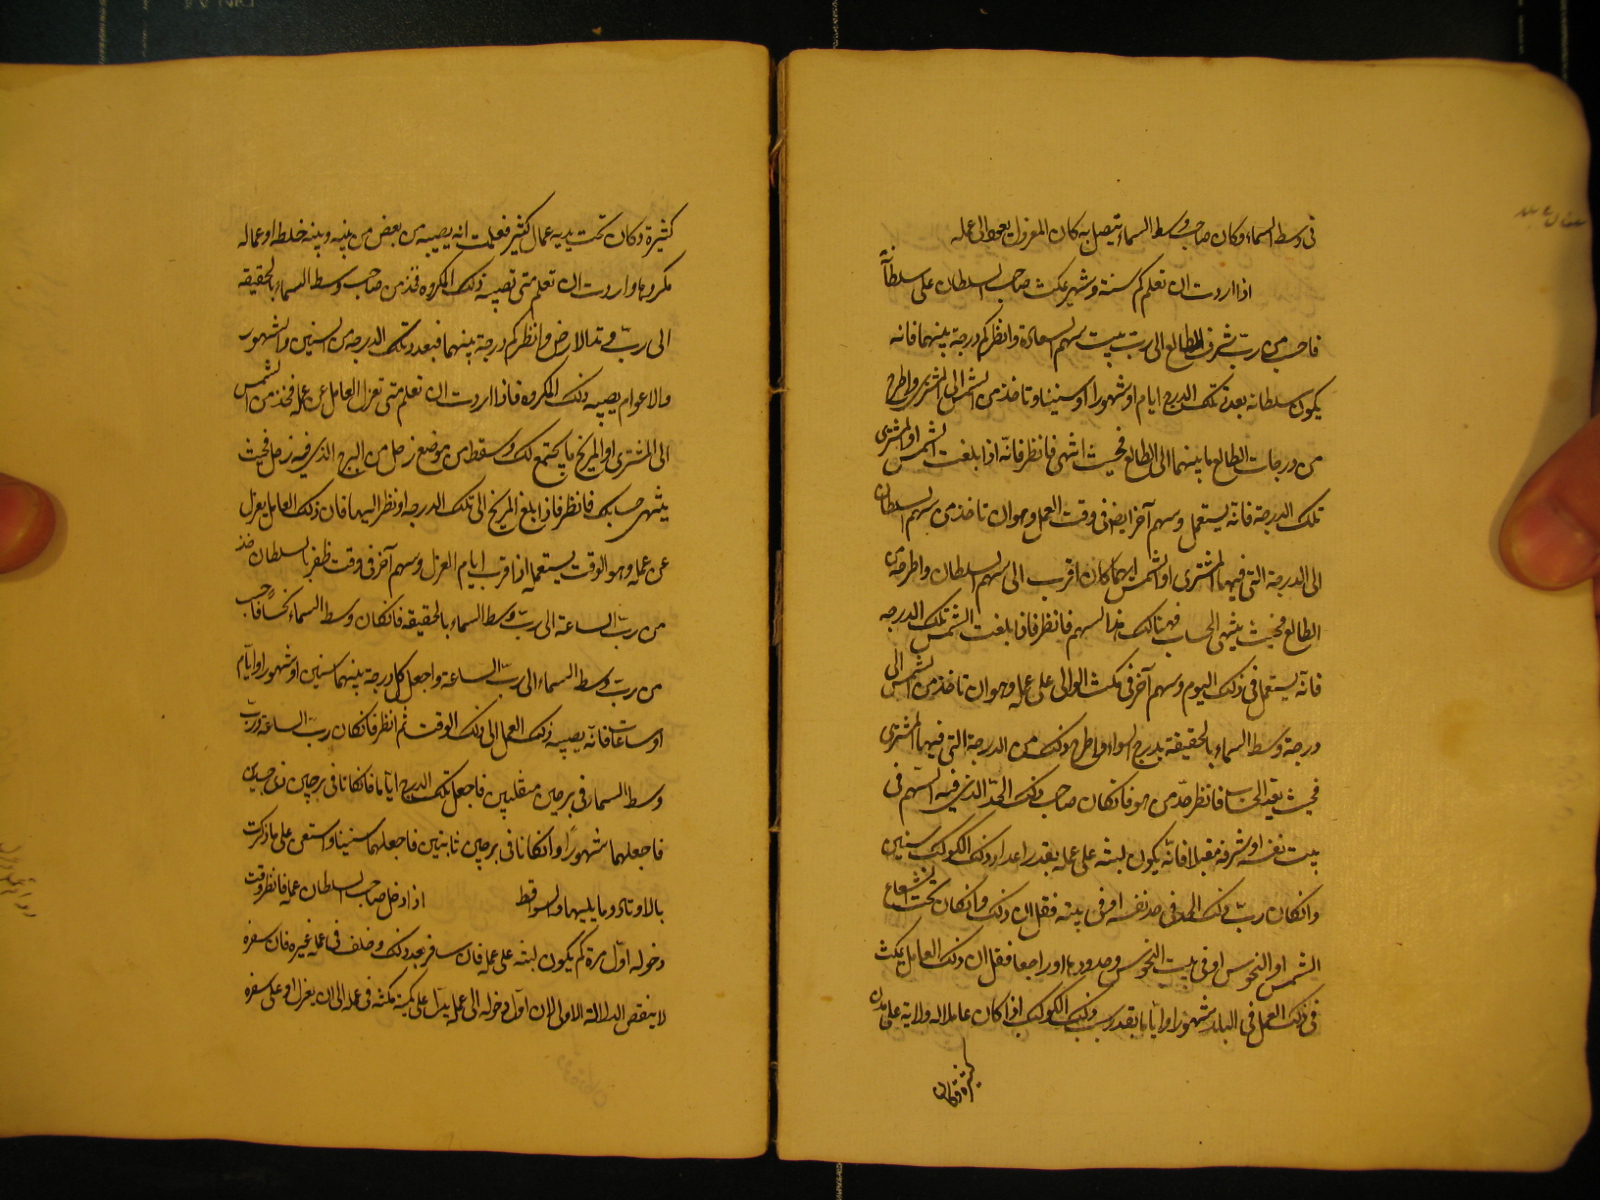 فى وسط السماء وكان صاحب وسط السماء يتصل به كان المعزول يعود الى عمله
اذا اردت ان تعلم كم سنة وشهر يمكث صاحب السلطان على سلطانه
فاحسب من ربّ شرف الطالع الى ربّ بيت سهم السعادة وانظر كم درجة بينهما فانه
يكون سلطانه بعدد تلك الدرج ايام او شهورا او سنينا وتاخذ من الشمس الى المشترى واطرح
من درجات الطالع ما بينهما الى الطالع فحيث انتهى فانظر فانّه اذا بلغت الشمس او المشترى
تلك الدرجة فانّه يستعمل وسهم آخر ايضا فى وقت العمل وهو ان تاخذ من سهم السلطان
الى الدرجة التى فيها المشترى او الشمس ايهما كان اقرب الى سهم السلطان واطرحه من
الطالع فحيث ينتهى الحساب فهنالك هذا السهم فانظر فاذا بلغت الشمس تلك الدرجه
فانّه يستعمل فى ذلك اليوم وسهم آخر فى مكث الوالى على عمله وهو ان تاخذ من الشمس الى
درجة وسط السماء بالحقيقة بدرج السواء واطرح ذلك من الدرجة التى فيها المشترى
فحيث يقع الحساب فانظر حدّ من هو فانكان صاحب ذلك الحدّ الذى فيه السّهم فى
بيت نفسه او شرفه مقبلا فانّه يكون لبثه على عمله بقدر اعداد ذلك الكوكب سنين
وانكان ربّ ذلك الحد فى حد نفسه او فى بيته فقل ان ذلك وانكان تحت الشعاع
الشمس او النحوس او فى بيت النحوس وحدودها او راجعا فقل ان ذلك العامل يمكث
فى ذلك العمل فى البلد شهورا او ايّاما بقدر ذلك الكوكب اذا كان عاملا له ولاية على مدن
كثيرة وكان
كثيرة وكان تحت يديه عمال كثير فعلمت انه يصيبه من بعض من بينه وبينه خلطه او عماله
مكروها واردت ان تعلم متى تصيبه ذلك المكروه فخذ من صاحب وسط السماء بالحقيقه
الى ربّ وتد الارض وانظر كم درجة بينهما فبعدد تلك الدرجه من السنين والشهور
والاعوام يصيبه ذلك المكروه فاذا اردت ان تعلم متى تعزل العامل عن عمله فخذ من الشمس
الى المشترى او المريخ ما يجتمع لك وتسقط من موضع زحل من البرج الذى فيه زحل فحيث
ينتهى حسابك فانظر فاذا بلغ المريخ الى تلك الدرجه او نظر اليها فان ذلك العامل يعزل
عن عمله وهو الوقت يستعمله اذا قرب ايام العزل وسهم آخر فى وقت ظفر السلطان خذ
من ربّ الساعة الى ربّ وسط السماء بالحقيقه فانكان وسط السماء فاحسب
من ربّ وسط السماء الى ربّ الساعة واجعل كل درجة بينهما سنين او شهورا او ايّام
او ساعات فانّه يصيبه ذلك العمل الى ذلك الوقت ثم انظر فانكان ربّ الساعة وربّ
وسط السماء فى برجين منقلبين فاجعل تلك الدرج ايّاما فانكانا فى برجين ذى جسدين
فاجعلهما شهورا وانكانا فى برجين ثابتين فاجعلهما سنينا واستعن على ما ذكرت
بالاوتاد وما يليهما والسواقط اذا دخل صاحب السلطان عمله فانظر وقت
دخوله اوّل مرة كم يكون لبثه على عمله فان سافر بعد ذلك وخلف فى عمله غيره فان سفره
لا ينقص الدلالة الاولى لان اوّل دخوله الى عمله يدل على كمية مكثه فى عمله الى ان يعزل او على سفره